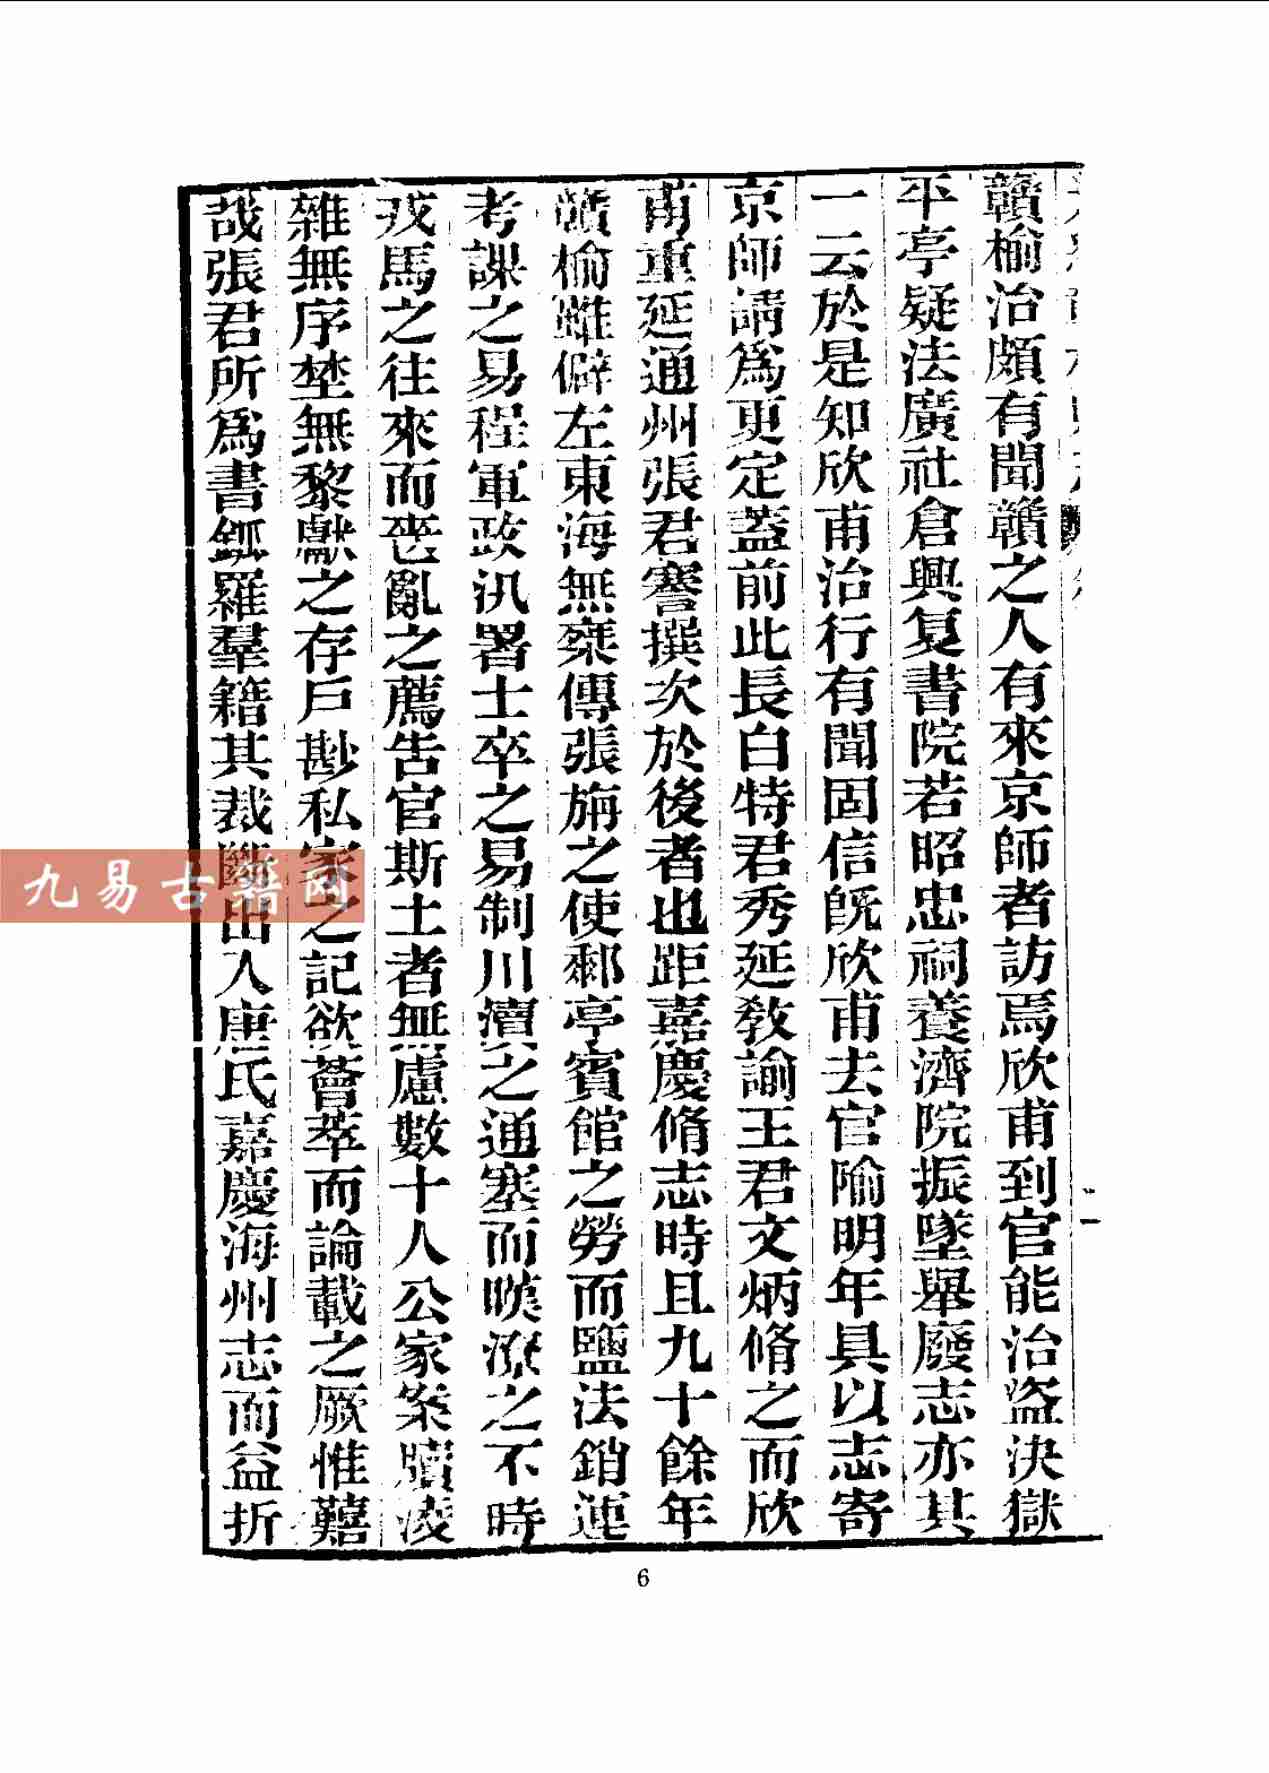 贛榆治頗有聞贛之人有來京師者訪焉欣甫到官能治盜決獄
平亭疑法廣社倉興复書院若昭忠祠養濟院振墜舉廢志亦其
一云於是知欣甫治行有聞固信旣欣甫去官隃明年具以志寄
京師請爲更定蓋前此長白特君秀延敎諭王君文炳脩之而欣
甫重延通州張君謇撰次於後者也距嘉慶脩志時且九十餘年
贛榆雖僻左東海無寀傳張旃之使郵亭賓館之勞而鹽法銷運
考課之易程軍政汛署士卒之易制川瀆之通塞而暵潦之不時
戎馬之往來而喪亂之薦告官斯土者無慮數十人公家案牘淩
雜無序埜無黎獻之存戶尠私家之記欲薈萃而論載之厥惟囏
哉張君所爲書釽羅羣籍其裁斷出入唐氏嘉慶海州志而益折
6
九易古籍网